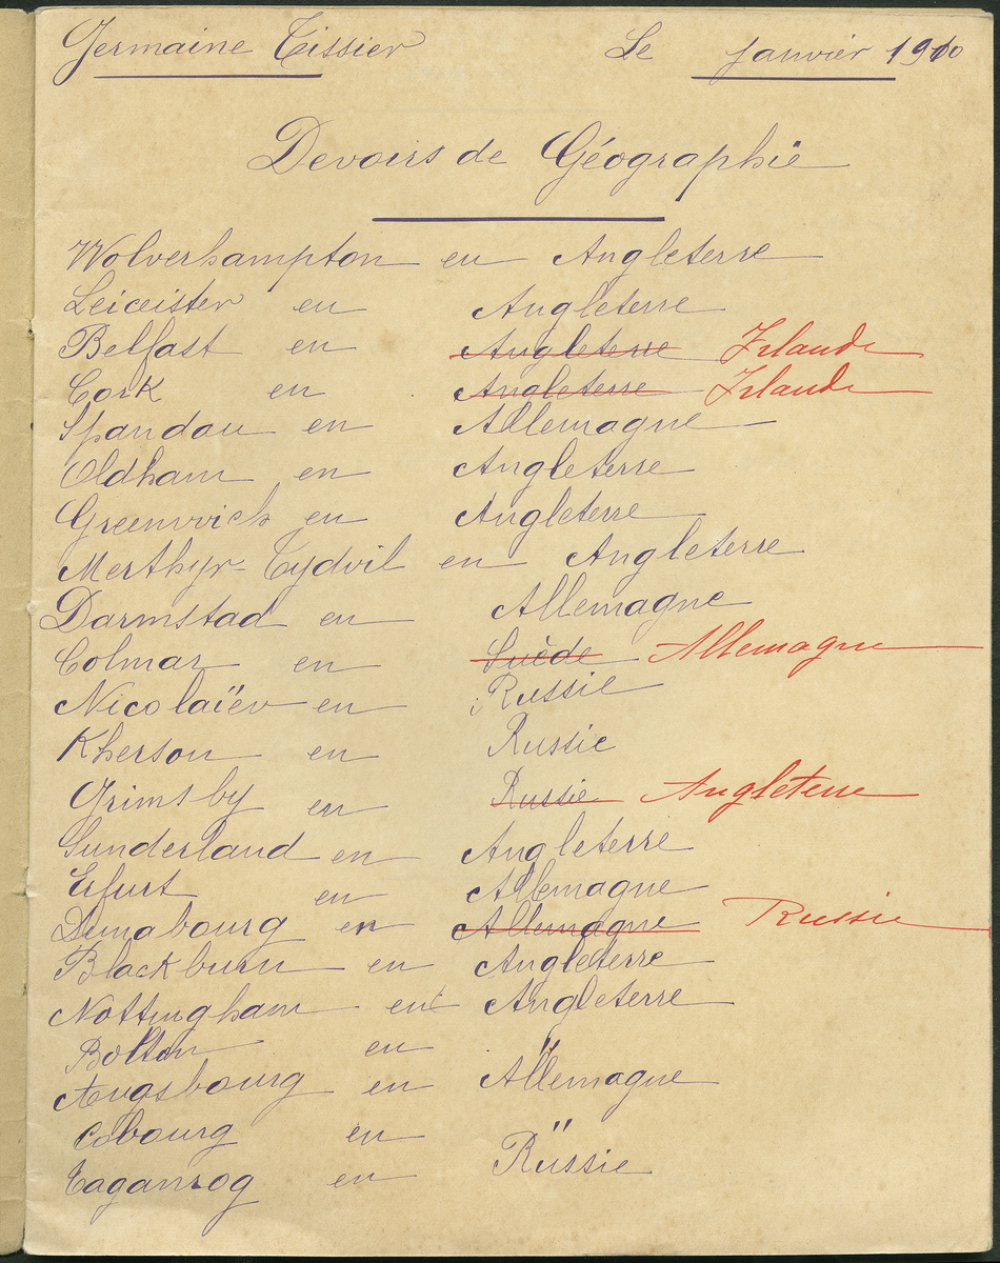 Germaine Tissier Le janvier 1910
Devoirs de Géographie
Wolverhampton en Angleterre
Leiceister en Angleterre
Belfast en Angleterre Irlande
Cork en Angleterre Irlande
Spandau en Allemagne
Oldham en Angleterre
Greenwich en Angleterre
Merthyr-Tydvil en Angleterre
Darmstad en Allemagne
Colmar en Suède Allemagne
Nicolaïev en Russie
Kherson en Russie
Grimsby en Russie Angleterre
Sunderland en Angleterre
Erfurt en Allemagne
Dunabourg en Allemagne Russie
Blackburn en Angleterre
Nottingham en Angleterre
Bolton en "
Augsbourg en Allemagne
Cobourg en "
Taganrog en Russie